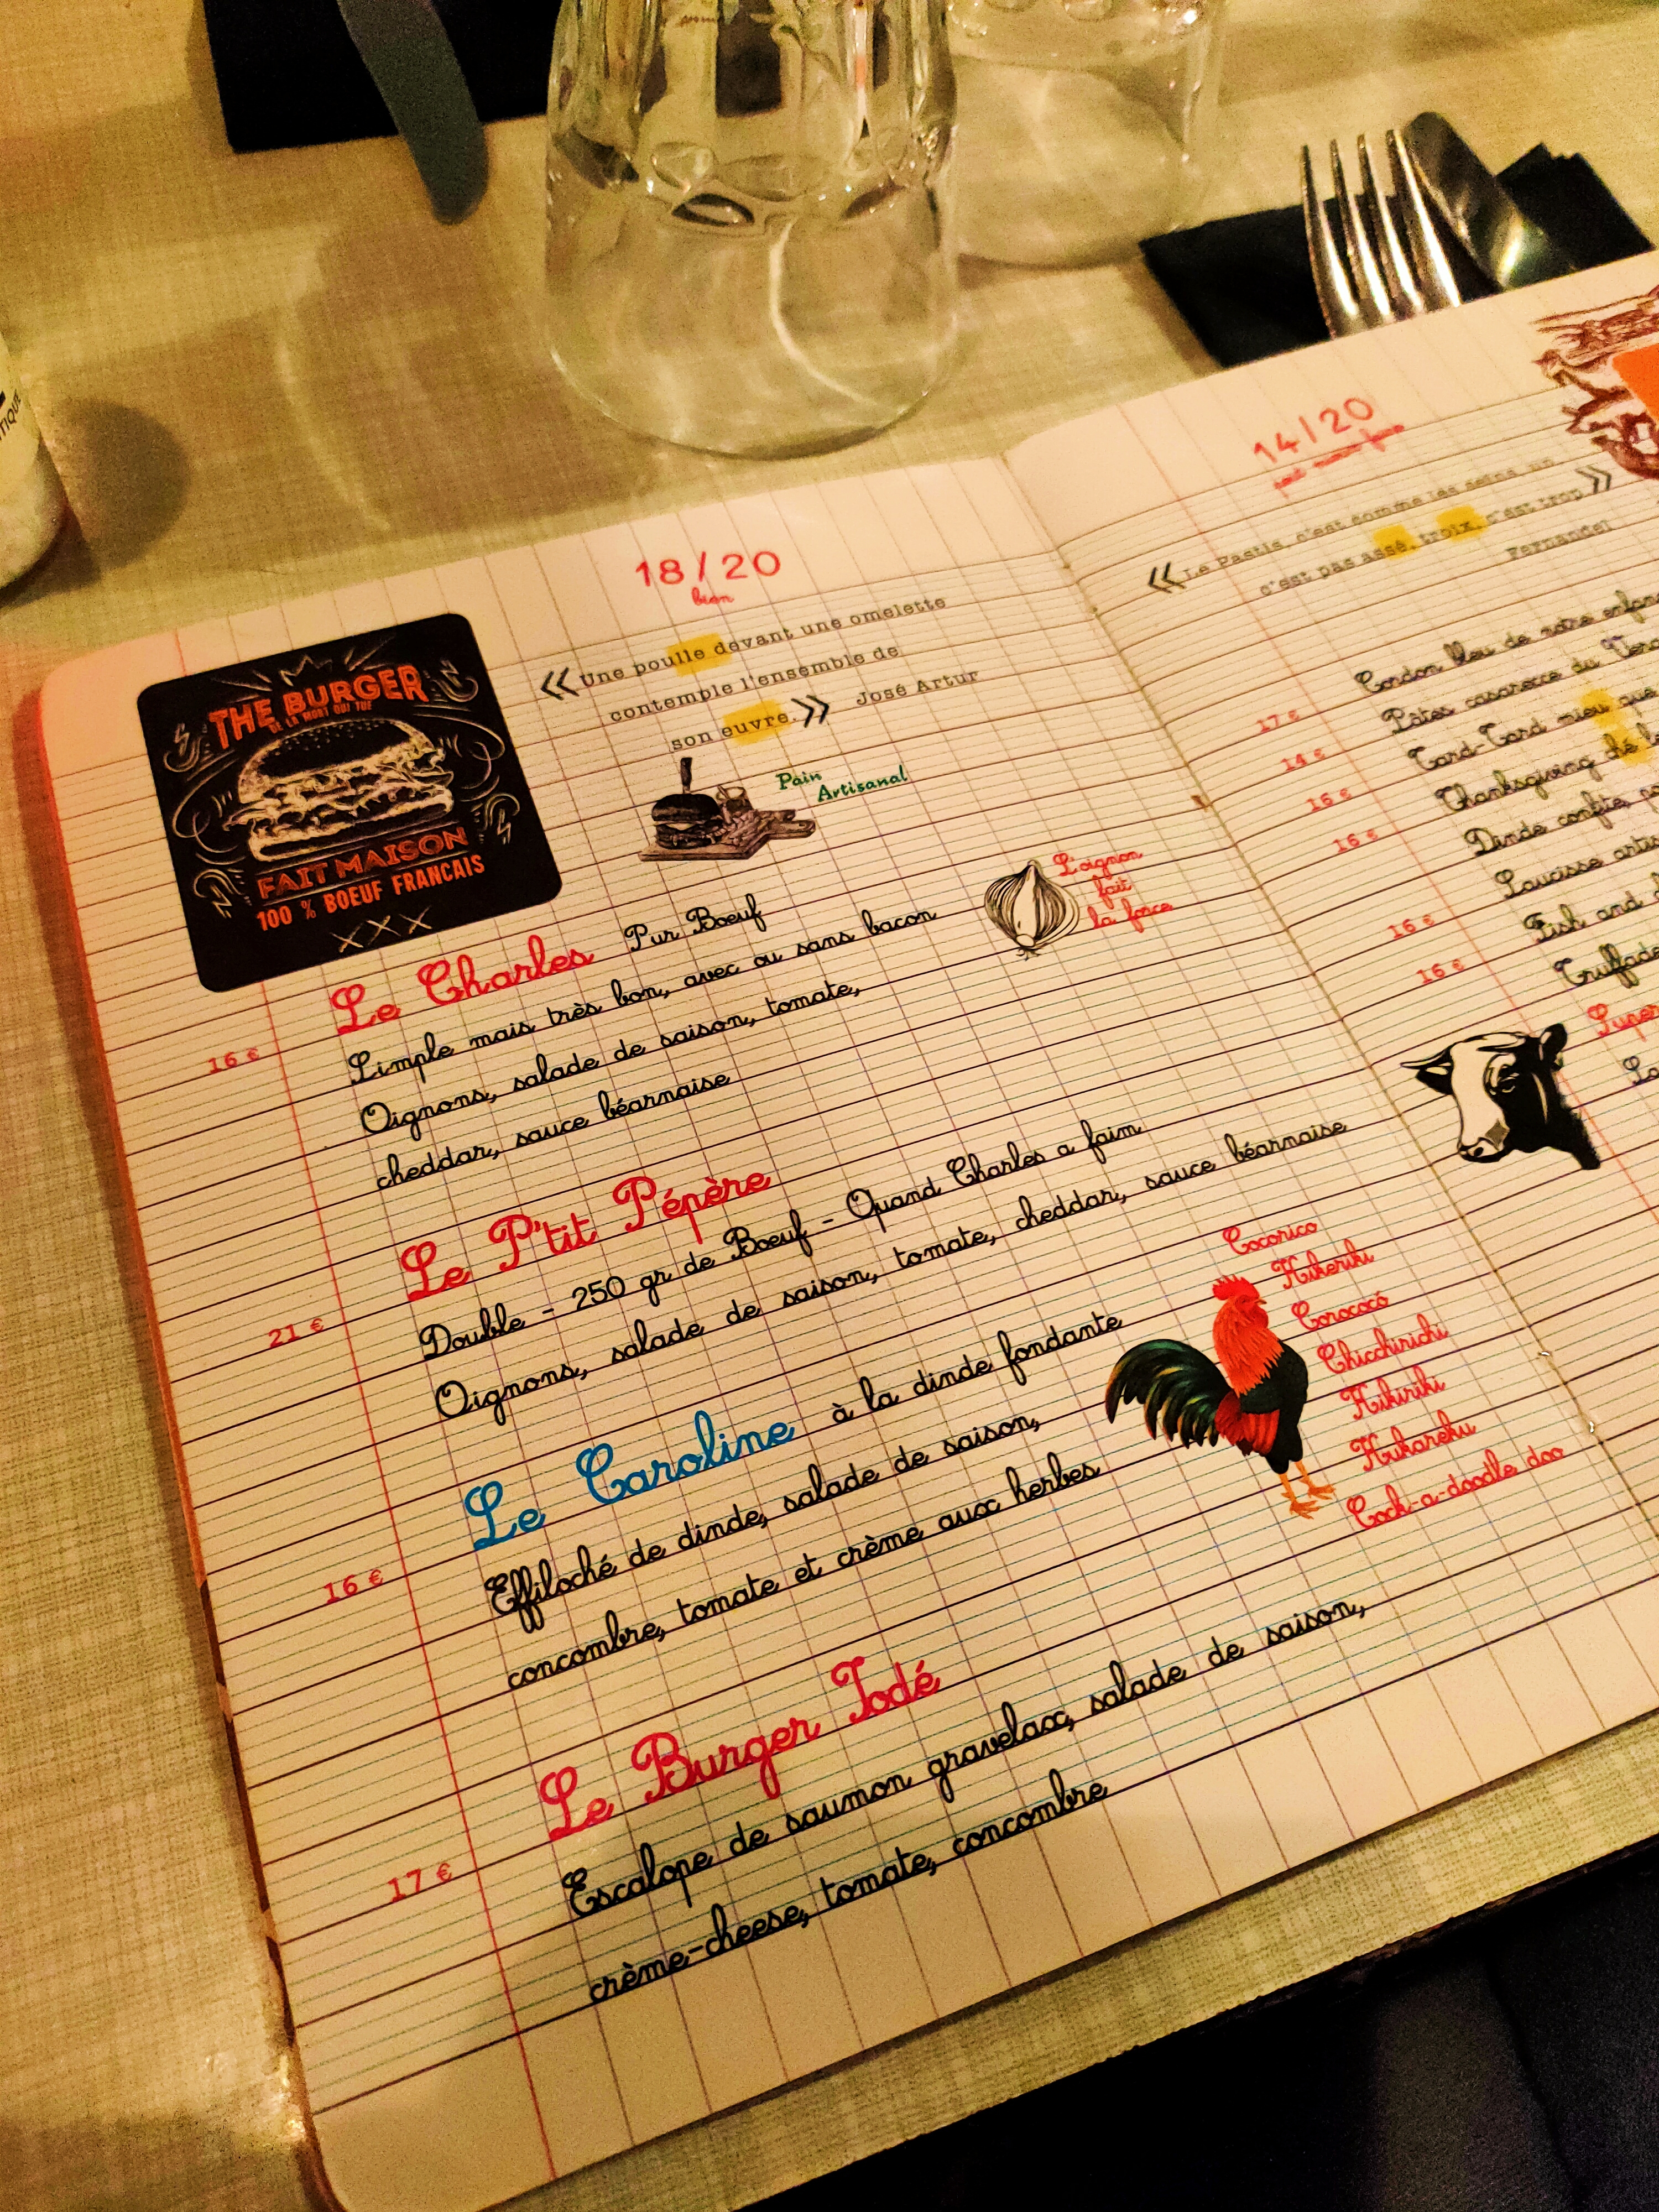 TIQUE
THE BURGER
DE LA MORT QUI TUE
FAIT MAISON
100 % BOEUF FRANCAIS
XXX
18/20
bien
« Une poulle devant une omelette
contemple l'ensemble de
son euvre. » José Artur
Pain
Artisanal
L'oignon
fait
la force
Le Charles Pur Boeuf
16 € Simple mais très bon, avec ou sans bacon
Oignons, salade de saison, tomate,
cheddar, sauce béarnaise
Le P'tit Pépère
21 € Double - 250 gr de Boeuf - Quand Charles a faim
Oignons, salade de saison, tomate, cheddar, sauce béarnaise
Le Caroline à la dinde fondante
16 € Effiloché de dinde, salade de saison,
concombre, tomate et crème aux herbes
Cocorico
Kikeriki
Corococó
Chicchirichi
Kikiriki
Kukareku
Cock-a-doodle doo
Le Burger Iodé
17 € Escalope de saumon gravelax, salade de saison,
crème-cheese, tomate, concombre
14/20
« Le Pastis, c'est comme les seins, un
c'est pas assé, troix, c'est trop »
Fernandel
Cordon bleu de notre enfanc
17 € Pâtes casarecce du
14 € Tard-Tard mieu que
16 € Thanksgiving ché
16 € Dinde confite,
Saucisse artis
16 € Fish and
16 € Truffade
Super